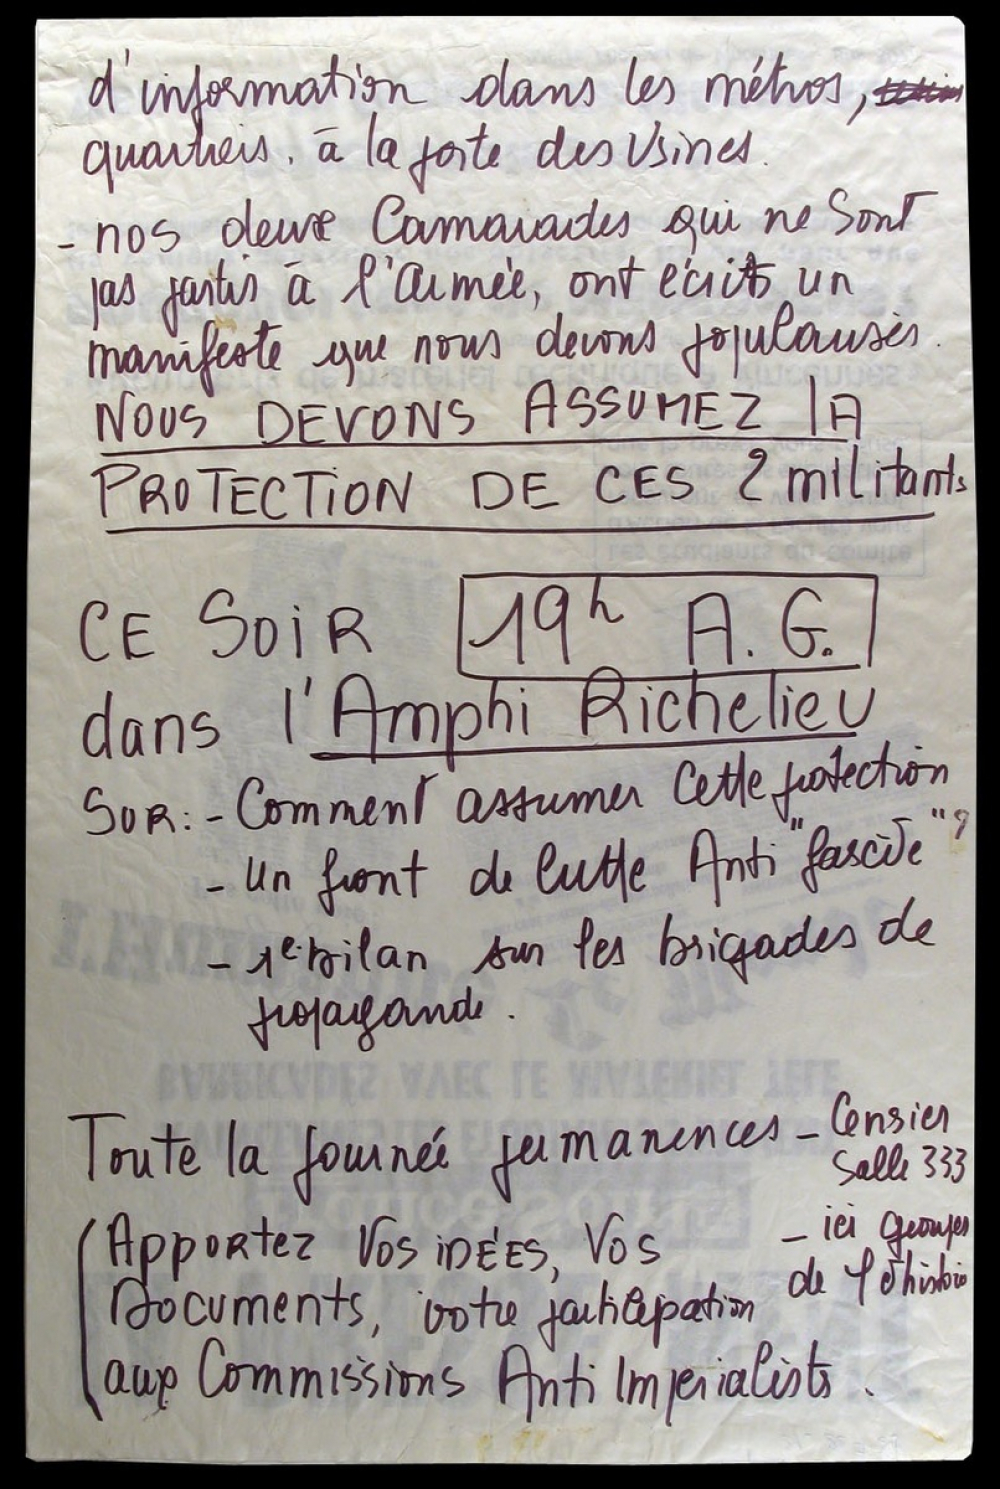 d'information dans les métros,
quartiers, à la porte des Usines.
- nos deux Camarades qui ne Sont
pas partis à l'armée, ont écrits un
manifeste que nous devons populariser.
NOUS DEVONS ASSUMEZ lA
PROTECTION DE CES 2 militants
CE SOIR 19h A.G.
dans l'Amphi Richelieu
SUR: - Comment assumer Cette protection
- un front de lutte Anti "fasciste"?
- 1e bilan sur les brigades de
propagande.
Toute la journée permanences - Censier
Salle 333
- ici groupes
de
Apportez Vos iDÉES, Vos
Documents, votre participation
aux Commissions Anti Impérialists.